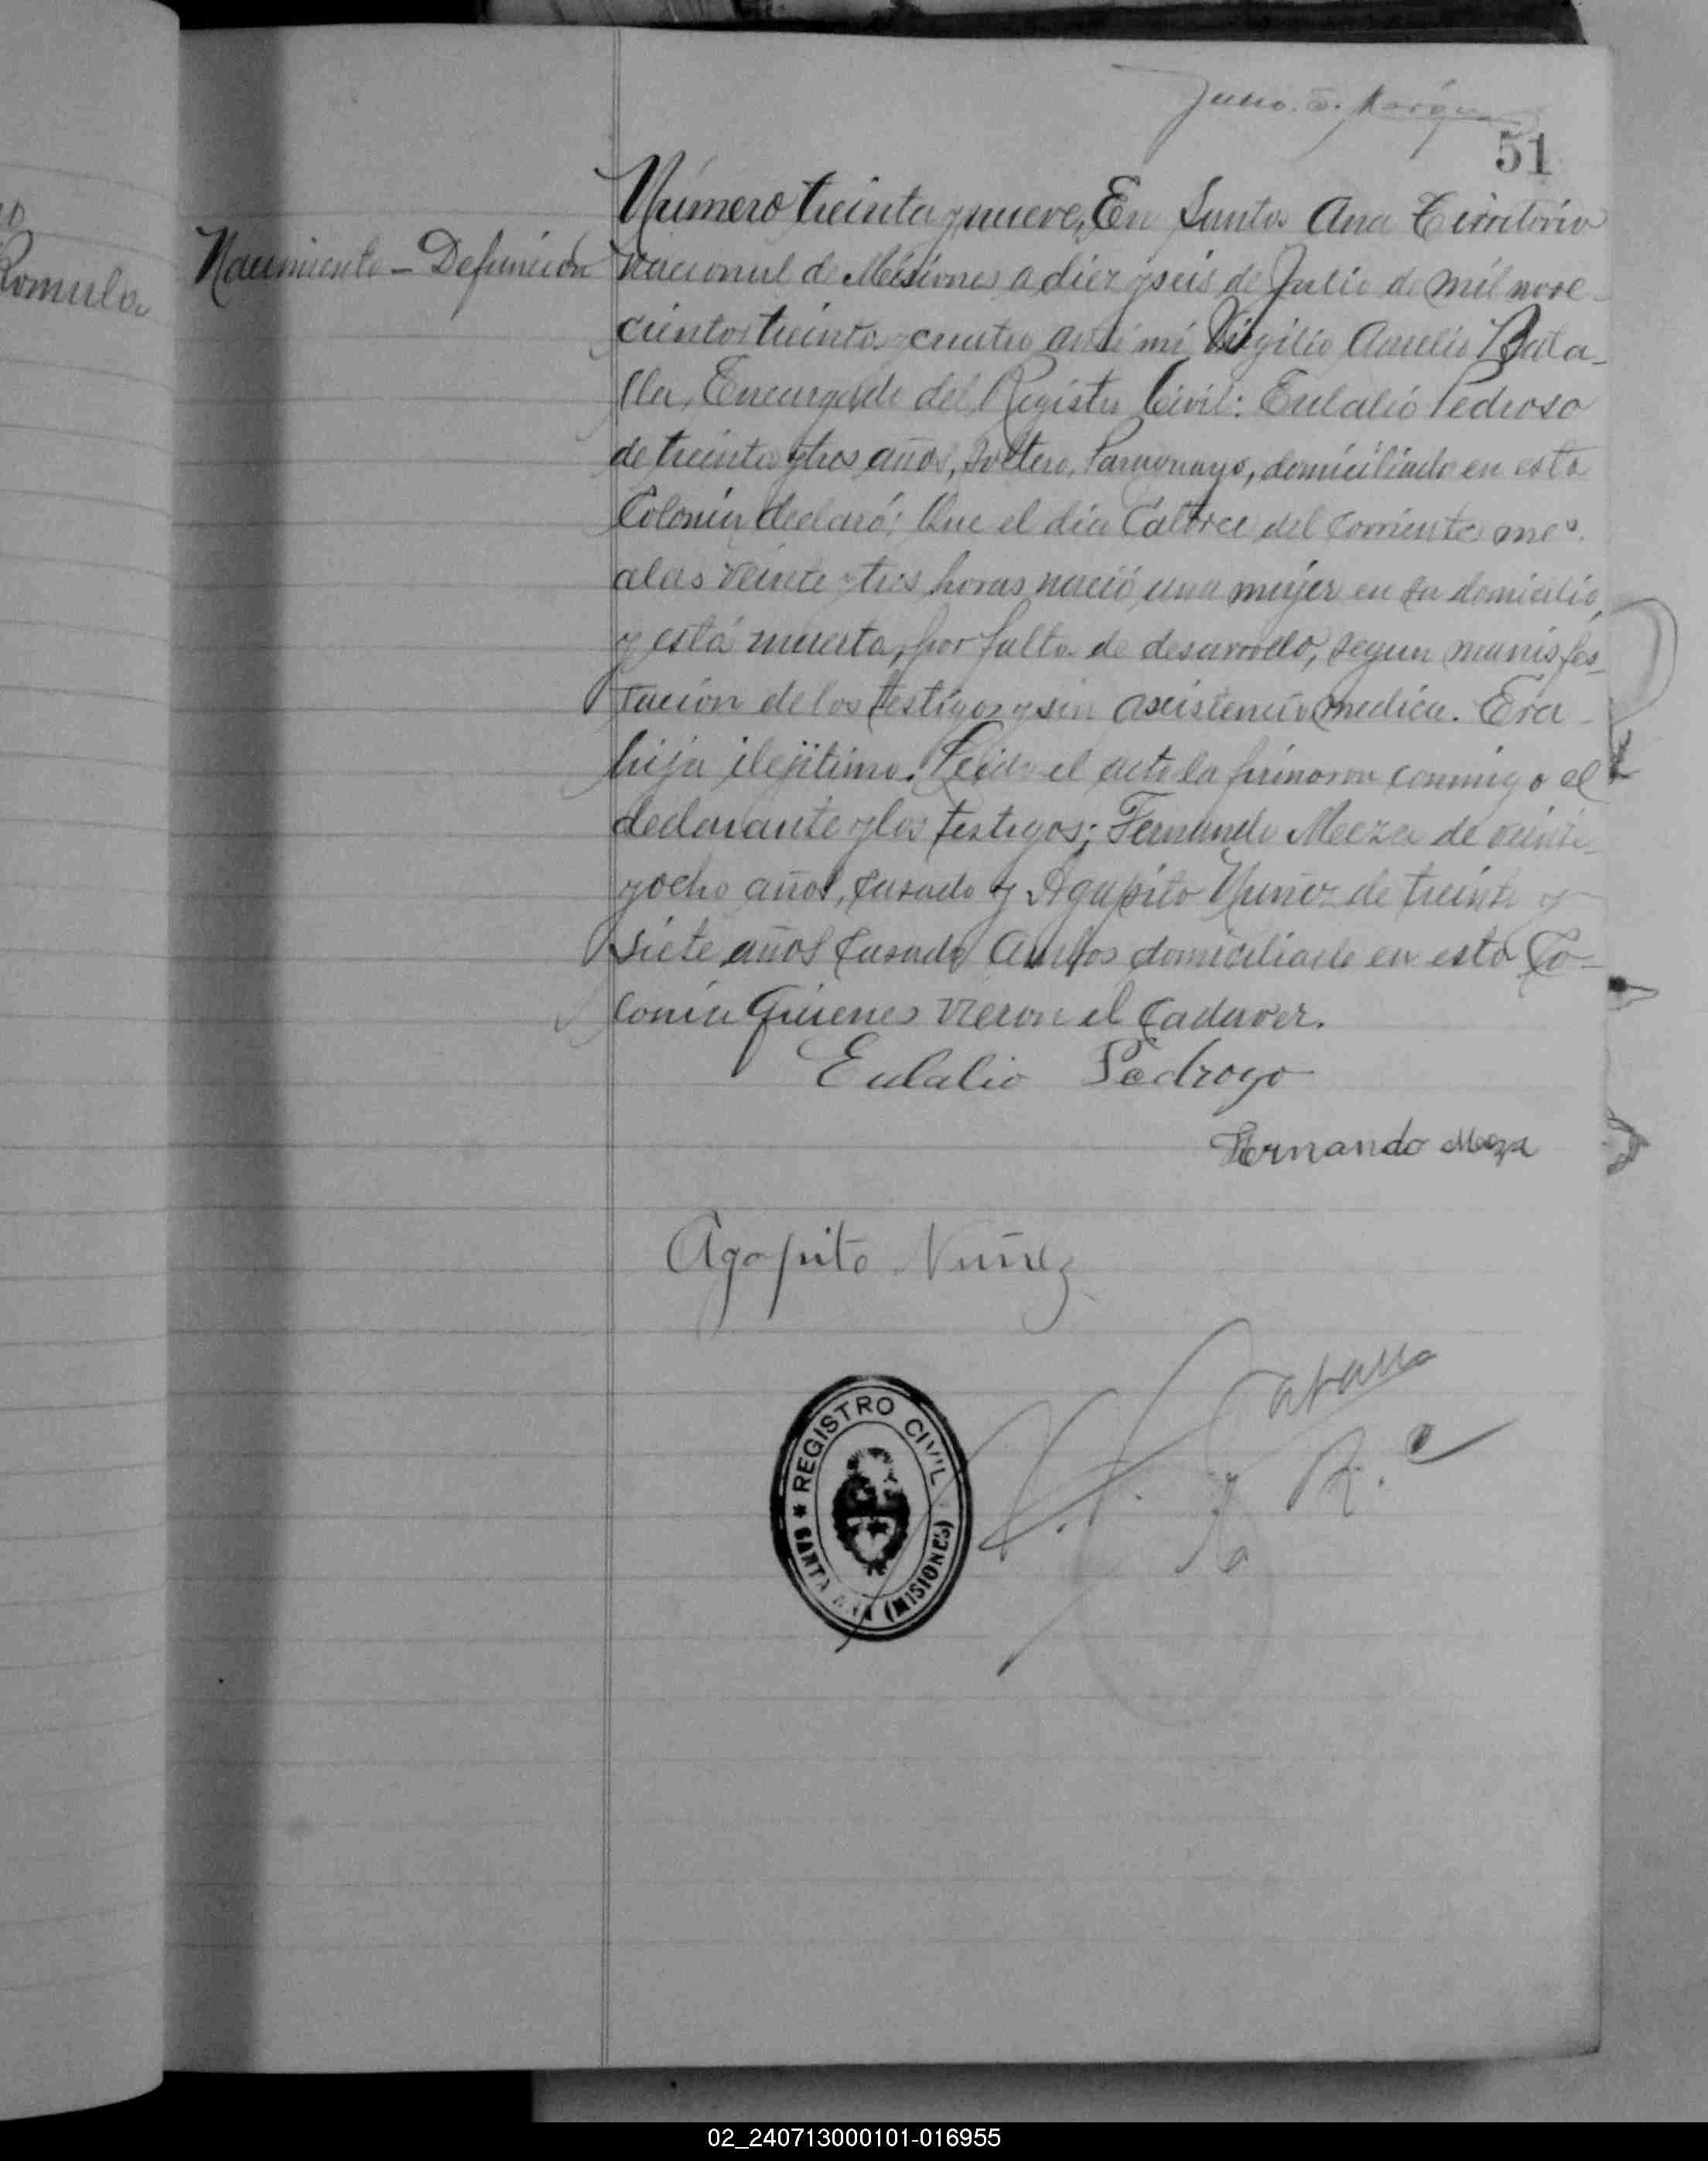 51
Número treinta y nueve, En Santa Ana Territorio
Nacimiento - Defunción
Nacional de Misiones a diez y seis de Julio de mil nove-
cientos treinta y cuatro ante mi Virgilio Aurelio Bata-
lla, Encargado del Registro Civil: Eulalio Pedroso
de treinta y tres años, soltero, Paraguayo, domiciliado en esta
Colonia declaró: Que el dia Catorce del corriente mes
a las veinte y tres horas nació una mujer en su domicilio,
y está muerta, por falta de desarrollo, segun manisfes-
tación de los testigos y sin asistencia medica. Era
hija ilejitima. Leida el acta la firmaron conmigo el
declarante y los testigos; Fernando Meza de veinte
y ocho años, casado y Agapito Nuñez de treinta y
siete años casado Ambos domiciliado en esta Co-
lonia Quienes vieron el cadaver.
Eulalio Pedrozo
Fernando Meza
Agapito Nuñez
REGISTRO CIVIL
SANTA ANA (MISIONES)
Romula
02_240713000101-016955